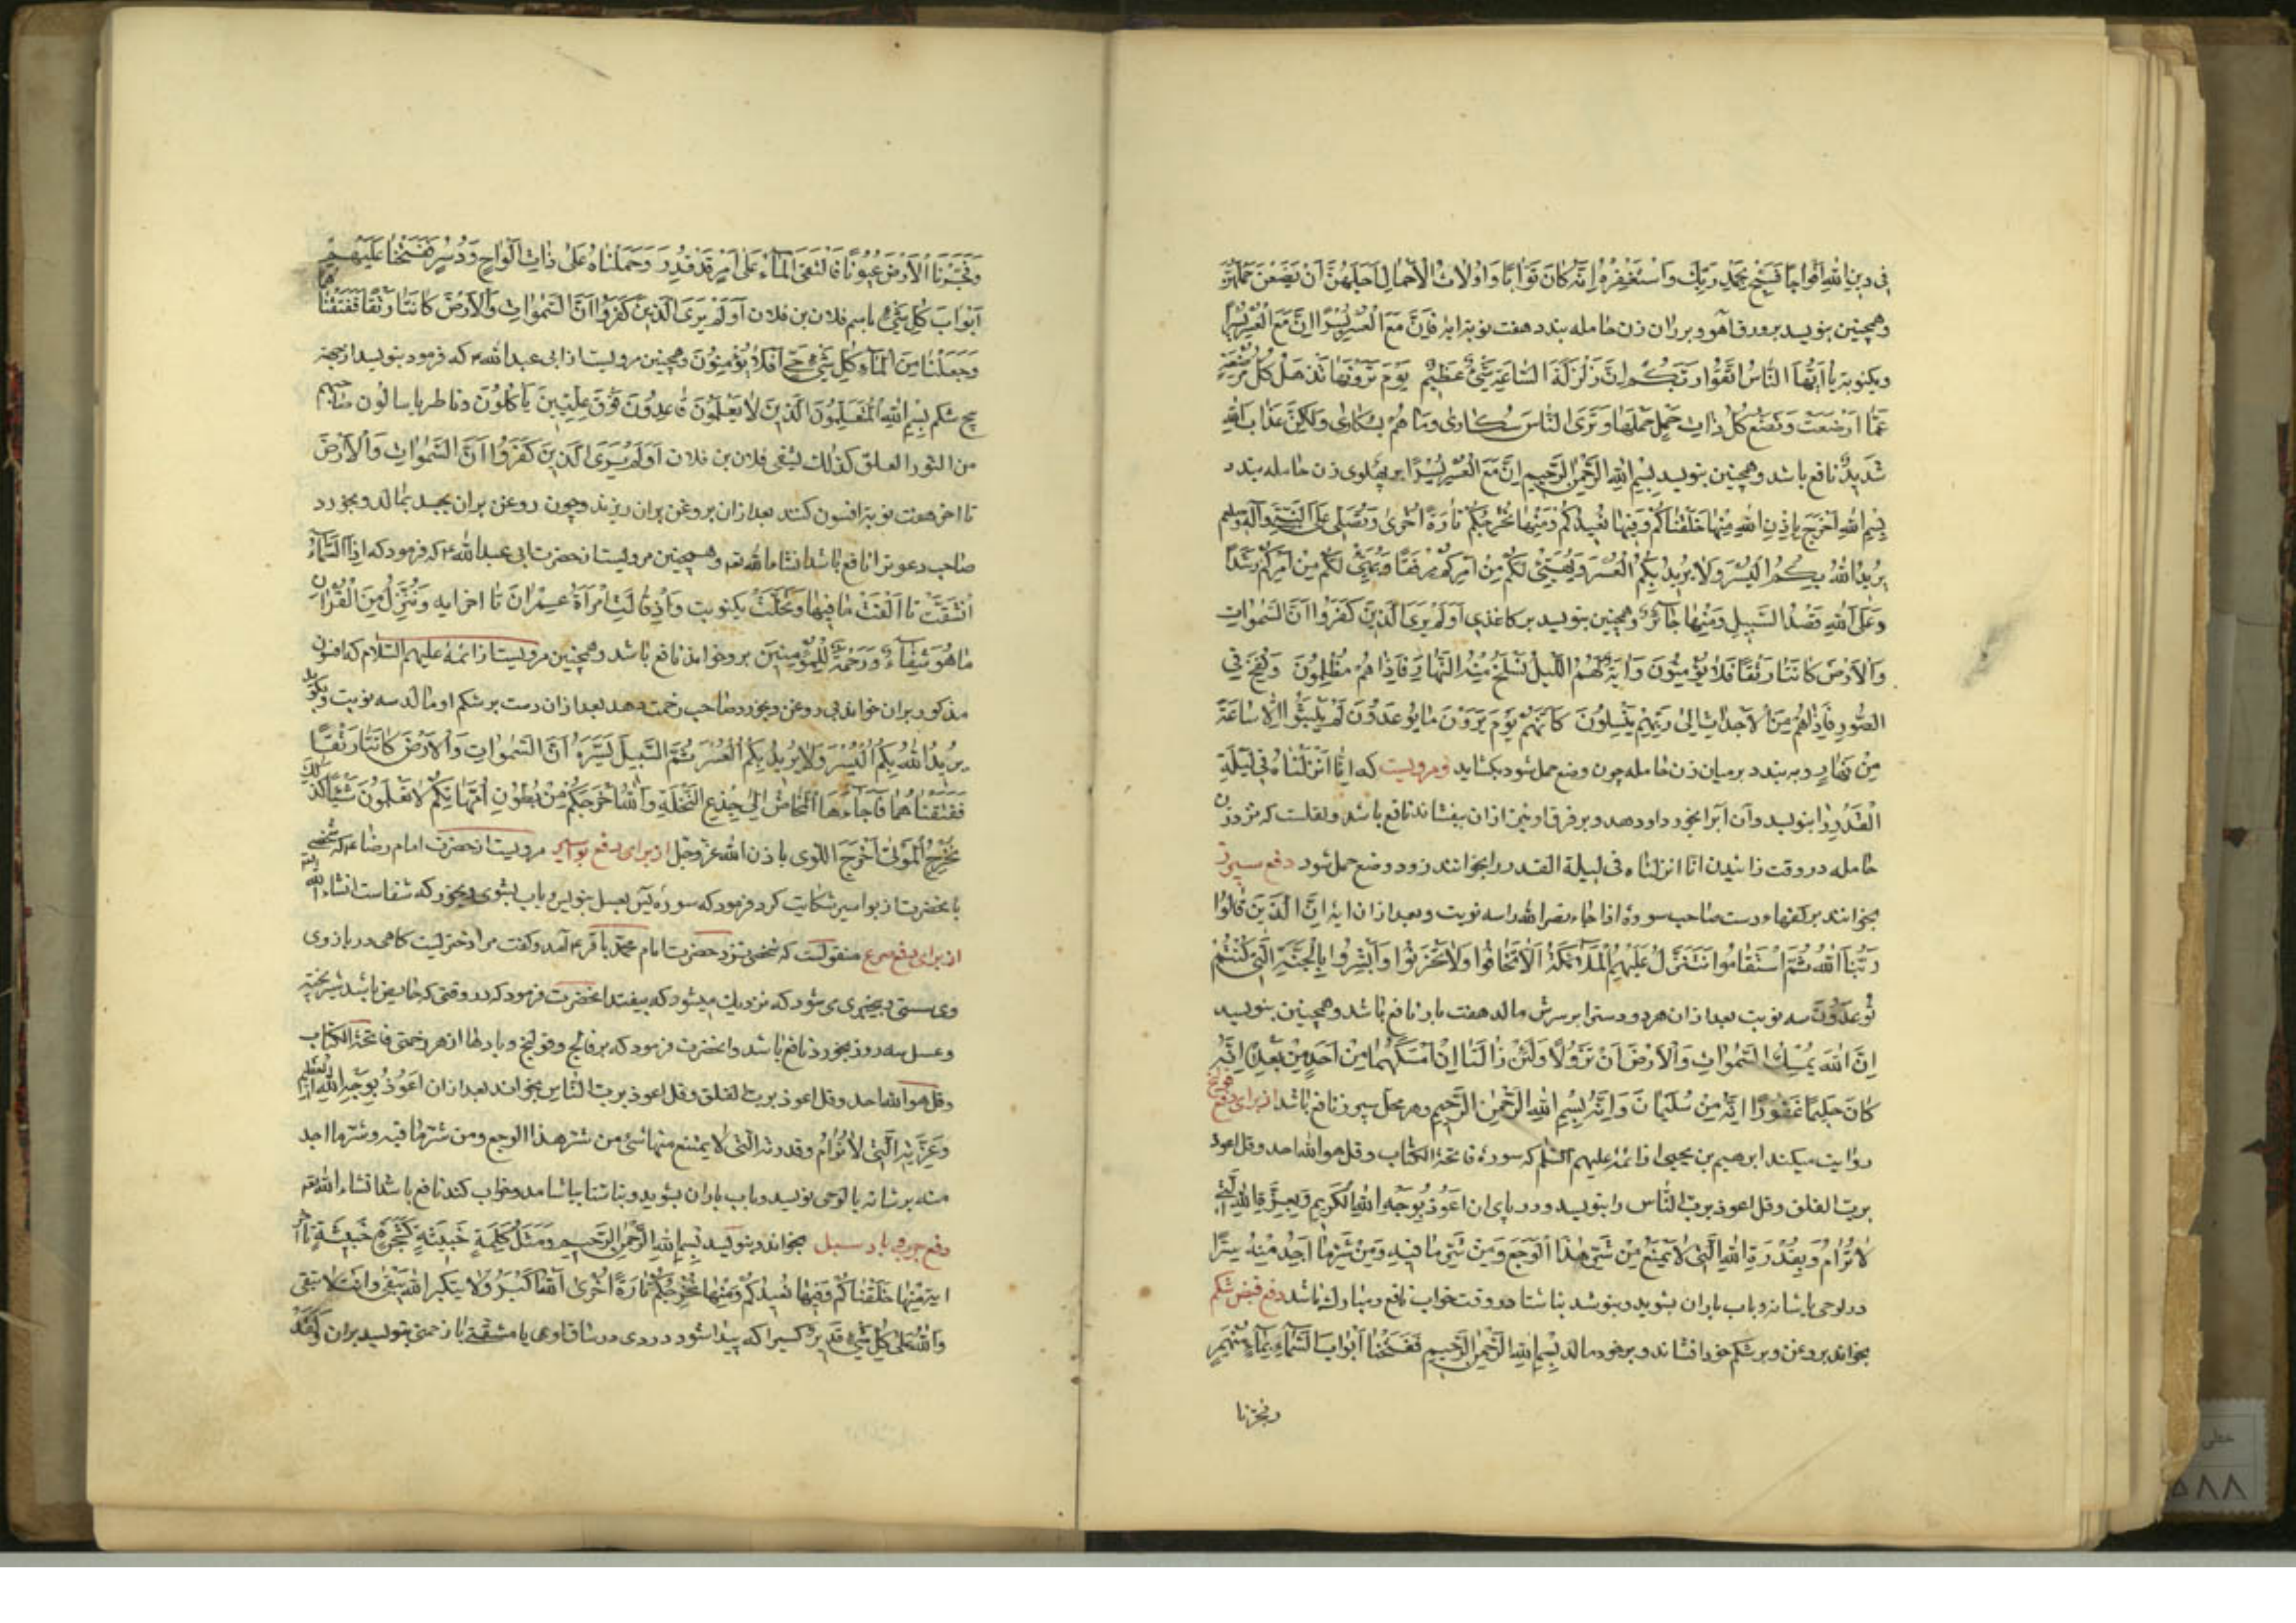 فی دین الله افواجا فسبح بحمد ربک واستغفره انه کان توابا واولات الاحمال اجلهن ان یضعن حملهن
وهمچنین بنویسد برورق آهو و بر ران زن حامله بندد هفت نوبه این ایه فان مع العسر یسرا ان مع العسر یسرا
ویکنوبه یا ایها الناس اتقوا ربکم ان زلزلة الساعة شیء عظیم یوم ترونها تذهل کل مرضعة
عما ارضعت وتضع کل ذات حمل حملها وتری الناس سکاری وما هم بسکاری ولکن عذاب الله
شدید نافع باشد وهمچنین بنویسد بسم الله الرحمن الرحیم ان مع العسر یسرا بر پهلوی زن حامله بندد
بسم الله اخرج باذن الله منها خلقناکم وفیها نعیدکم ومنها نخرجکم تارة اخری وتصلی علی النبی وآله وسلم
یرید الله بکم الیسر ولا یرید بکم العسر ویهیئ لکم من امرکم مرفقا ویهیئ لکم من امرکم رشدا
وعلی الله قصد السبیل ومنها جائر وهمچنین بنویسد بر کاغذی اولم یر الذین کفروا ان السموات
والارض کانتا رتقا فلا یؤمنون وایة لهم اللیل نسلخ منه النهار فاذا هم مظلمون ونفخ فی
الصور فاذاهم من الاجداث الی ربهم ینسلون کانهم یوم یرون ما یوعدون لم یلبثوا الا ساعة
من نهار وبه بندد بر میان زن حامله چون وضع حمل شود بکشاید ومرویست که انا انزلناه فی لیلة
القدر را بنویسد وآن آبرا بخورد او دهد و بر فرق او نیز ازان بیفشاند نافع باشد ونقلست که هر زن
حامله در وقت زائیدن انا انزلناه فی لیلة القدر را بخوانند زود وضع حمل شود دفع سپرز
بخوانند بر کفها ودست صاحب سورهٔ اذا جاء نصر الله را سه نوبت وبعد ازان ایة ان الذین قالوا
ربنا الله ثم استقاموا تتنزل علیهم الملائکة الا تخافوا ولا تحزنوا وابشروا بالجنة التی کنتم
توعدون سه نوبت بعد ازان هر دو دست را بر سرش مالد هفت بار نافع باشد وهمچنین بنویسد
ان الله یمسک السموات والارض ان تزولا ولئن زالتا ان امسکهما من احد من بعده انه
کان حلیما غفورا انه من سلیمان وانه بسم الله الرحمن الرحیم وهر محل سپرز نافع باشد از برای دفع
روایت میکند ابرهیم بن یحیی از ائمه علیهم السلم که سورهٔ فاتحة الکتاب وقل هو الله احد وقل اعوذ
برب الفلق وقل اعوذ برب الناس را بنویسد ودر پای ان اعوذ بوجه الله الکریم وبعزة الله التی
لا ترام وبقدرة الله التی لا یمتنع من شیء هذا الوجع ومن شر ما فیه ومن شر ما اجد منه سرا
در لوحی یا شانه وباب باران بشوید وبنوشد بناشتا در وقت خواب نافع ومبارک باشد دفع قبض شکم
بخواند بر روغن وبر شکم خود افشاند وبر خود مالد بسم الله الرحمن الرحیم ففتحنا ابواب السماء بماء منهمر
وفجرنا
وفجرنا الارض عیونا فالتقی الماء علی امر قد قدر وحملناه علی ذات الواح ودسر فتحنا علیهم
ابواب کل شیء باسم فلان بن فلان اولم یر الذین کفروا ان السموات والارض کانتا رتقا ففتقناهما
وجعلنا من الماء کل شیء حی افلا یؤمنون وهمچنین مرویست از ابی عبد الله ع که فرمود بنویسد از جهة
پیچ شکم بسم الله الذین لا یعلمون قاعدون فوق علیین یاکلون
من الثور العلق کذلک لیشفی فلان بن فلان اولم یر الذین کفروا ان السموات والارض
تا اخر هفت نوبه افسون کنند بعد ازان بر روغن بران ریزند وچون روغن بران بجسد بمالد وبخورد
صاحب دعوترا نافع باشد انشاء الله تعه وهمچنین مرویست از حضرت ابی عبد الله ع که فرمود که اذا السماء
انشقت تا القت ما فیها وتخلت یکنوبت واذ قالت امرأة عمران تا اخر ایه وننزل من القران
ما هو شفاء ورحمة للمؤمنین برو خوانند نافع باشد وهمچنین مرویست از ائمه علیهم السلام که افسون
مذکور بران خوانند بی روغن وبخورد صاحب زحمت دهد بعد ازان دست بر شکم او مالد سه نوبت وبگوید
یرید الله بکم الیسر ولا یرید بکم العسر ثم السبیل یسره ان السموات والارض کانتا رتقا
ففتقناهما فاجاءها المخاض الی جذع النخلة والله اخرجکم من بطون امهاتکم لا تعلمون شیئا کذلک
نخرج الموتی اخرج اللوی باذن الله عز وجل از برای دفع بواسیر مرویست از حضرت امام رضا ع که شخصی
بانحضرت از بواسیر شکایت کرد فرمود که سوره یس بعسل بنویس وباب بشوی وبخور که شفاست انشاء الله
از برای دفع صرع منقولست که شخصی بنزد حضرت امام محمد باقر ع آمد وگفت مرا دختریست کاهی در بازوی
وی سستی وبیخبری می شود که نزدیک میشود که بیفتد انحضرت فرمود که در وقتی که حایض باشد شیر پخته
وعسل سه روز بخورد نافع باشد وانحضرت فرمود که بر فالج وقولنج وبادها از هر زحمتی فاتحة الکتاب
وقل هو الله احد وقل اعوذ برب الفلق وقل اعوذ برب الناس بخواند بعد ازان اعوذ بوجه الله العظیم
وعزته التی لا ترام وقدرته التی لا یمتنع منها شیء من شر هذا الوجع ومن شر ما فیه وشر ما اجد
منه بر شانه یا لوحی نویسد وباب باران بشوید وبناشتا بیاشامد وخواب کند نافع باشد انشاء الله تعه
دفع باد سبل بخواند وبنویسد بسم الله الرحمن الرحیم ومثل کلمة خبیثة کشجرة خبیثة تا آخر
ایة منها خلقناکم وفیها نعیدکم ومنها نخرجکم تارة اخری الله اکبر ولا یتکبر الله یبقی وانت لا تبقی
والله علی کل شیء قدیر کسیرا که پیدا شود دردی در ساق او یا مشقتی یا زحمتی بنویسد بران
۵۸۸